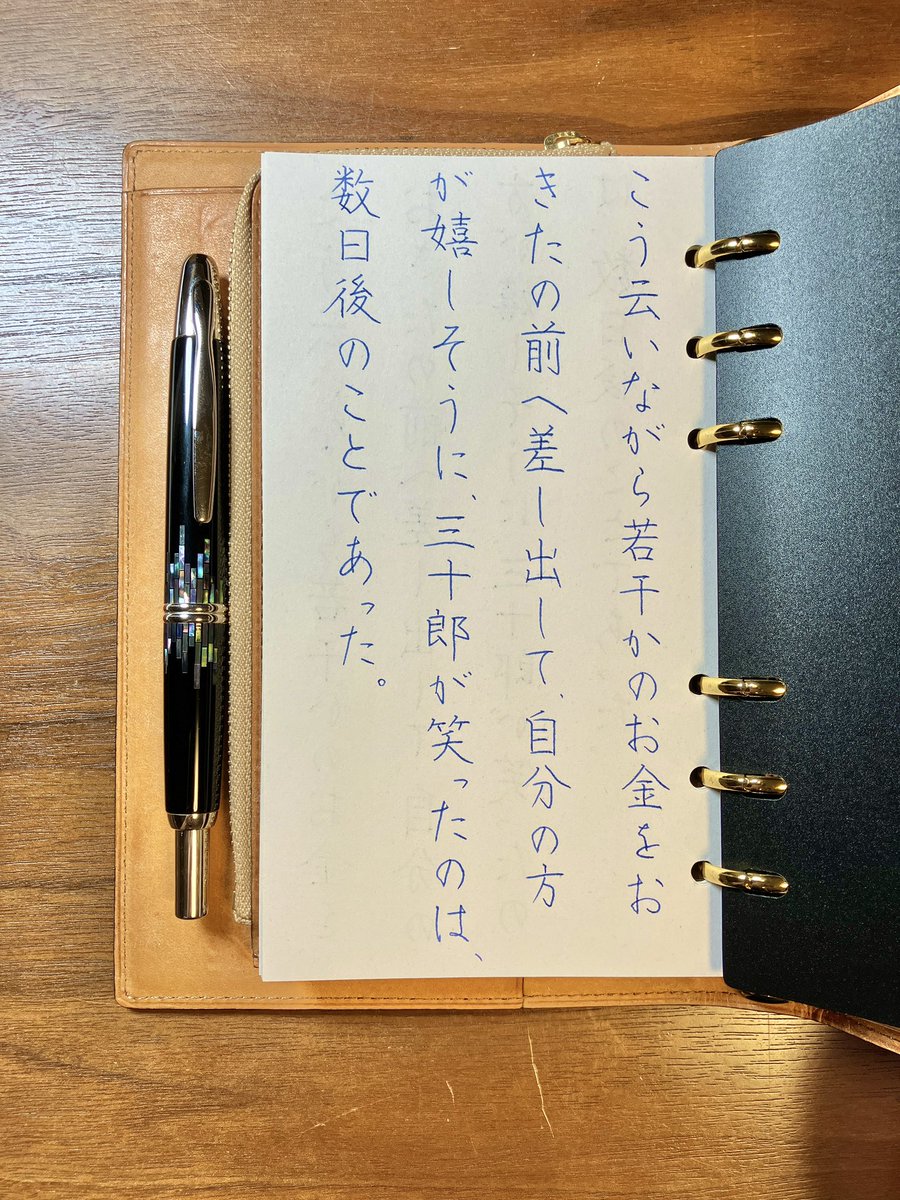 こう云いながら若干かのお金をお
きたの前へ差し出して、自分の方
が嬉しそうに、三十郎が笑ったのは、
数日後のことであった。